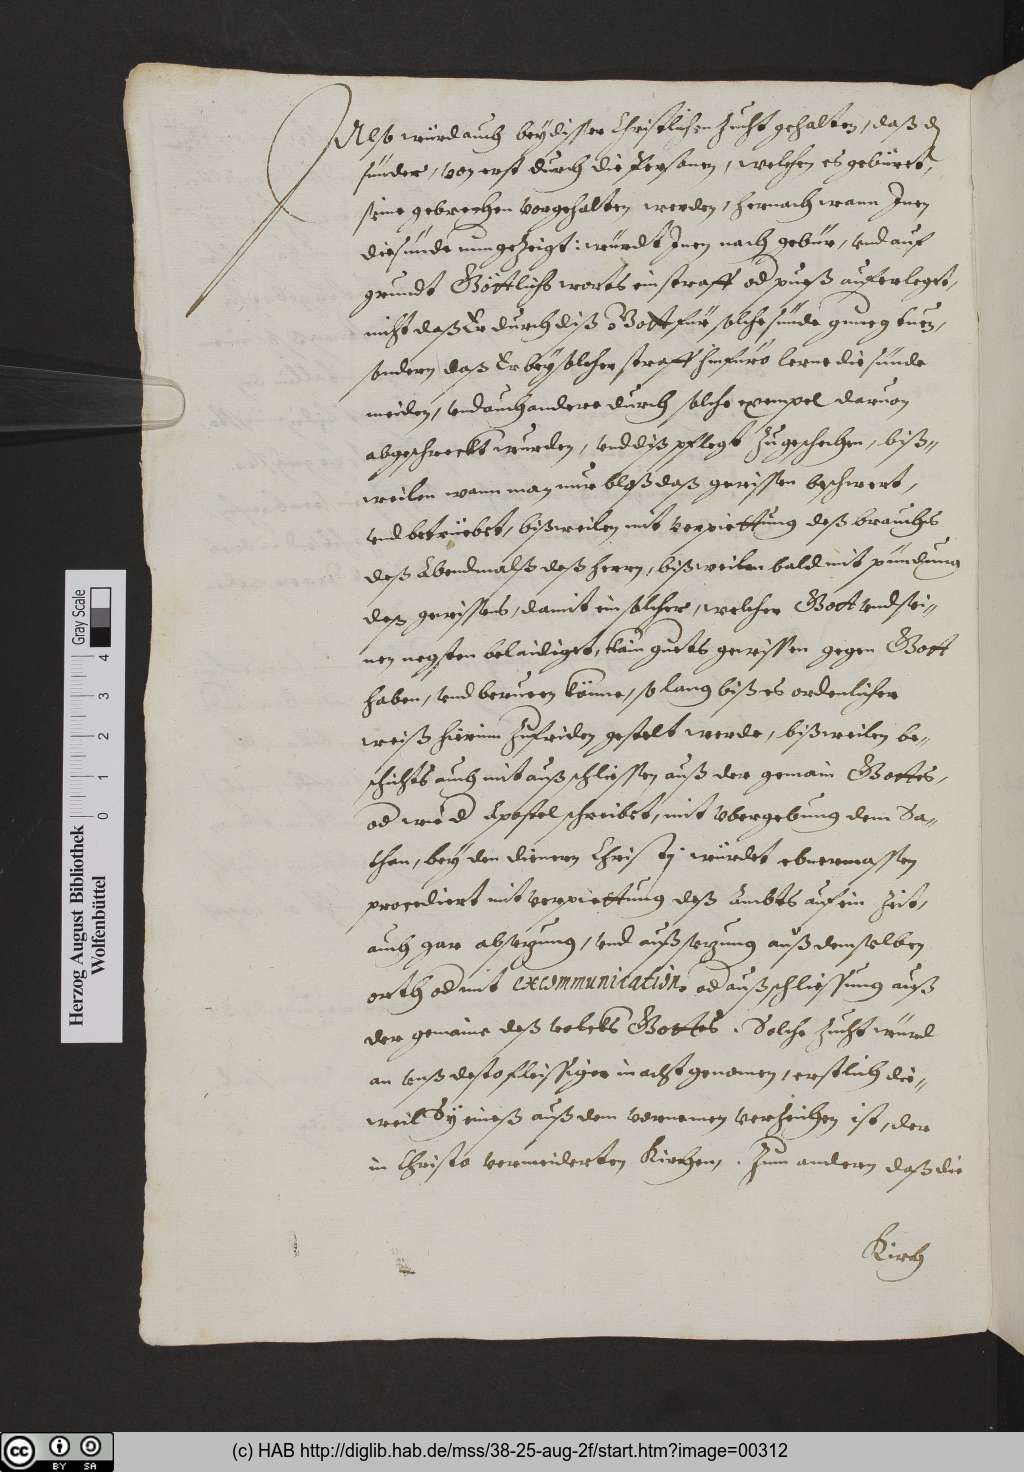 Also würd auch bey diser Christlichen Zucht gehalten, daß d
sünder, von erst durch die Personen, welchen es gebüret,
seine gebrechen vorgehalten werden, hernach wann Inen
die sünde nun gezeigt: würdt Inen nach gebür, vnd auf
grundt Göttlichs worts ein straff od pueß auferleget,
nicht daß Er durch diß Gott für solche sünde gnueg tuen,
sondern daß Er bey solcher straff hinfüro lerne die sünde
meiden, vnd auch andere durch solche exempel daruon
abgeschreckt wurden, vnd diß pflegt zu geschehen, biß-
weilen wann man nur bloß daß gewissen beschwert,
vnd betrüebet, bißweilen mit verpiettung deß brauchs
deß Abendmalß deß herrn, bißweilen bald mit pündung
deß gewissens, damit ein solcher, welcher Gott vnd sei-
nen negsten belaidiget, kain guets gewissen gegen Gott
haben, vnd beruen könne, so lang biß es ordenlicher
weiß hierinn zufriden gestelt werde, bißweilen be-
schichts auch mit außschliessen auß der gemain Gottes,
od wie d Apostel schreibet, mit vbergebung dem Sa-
than, bey den dienern Christj würdet ebnermassen
procediert mit verpiettung deß Ambts auf ein Zeit,
auch gar absezung, vnd außsezung auß demselben
orth od mit excommunication, od außschliessung auß
der gemaine deß volcks Gottes. Solche Zucht würd
an vnß desto fleissiger in acht genomen, erstlich die-
weil Sy eineß auß dem vornemen verzeichen ist, der
in Christo vermeiderten Kirchen, . Zum andern daß die
Kirch
Herzog August Bibliothek
Wolfenbüttel
Gray Scale
0 1 2 3 4
cc BY SA
(c) HAB http://diglib.hab.de/mss/38-25-aug-2f/start.htm?image=00312